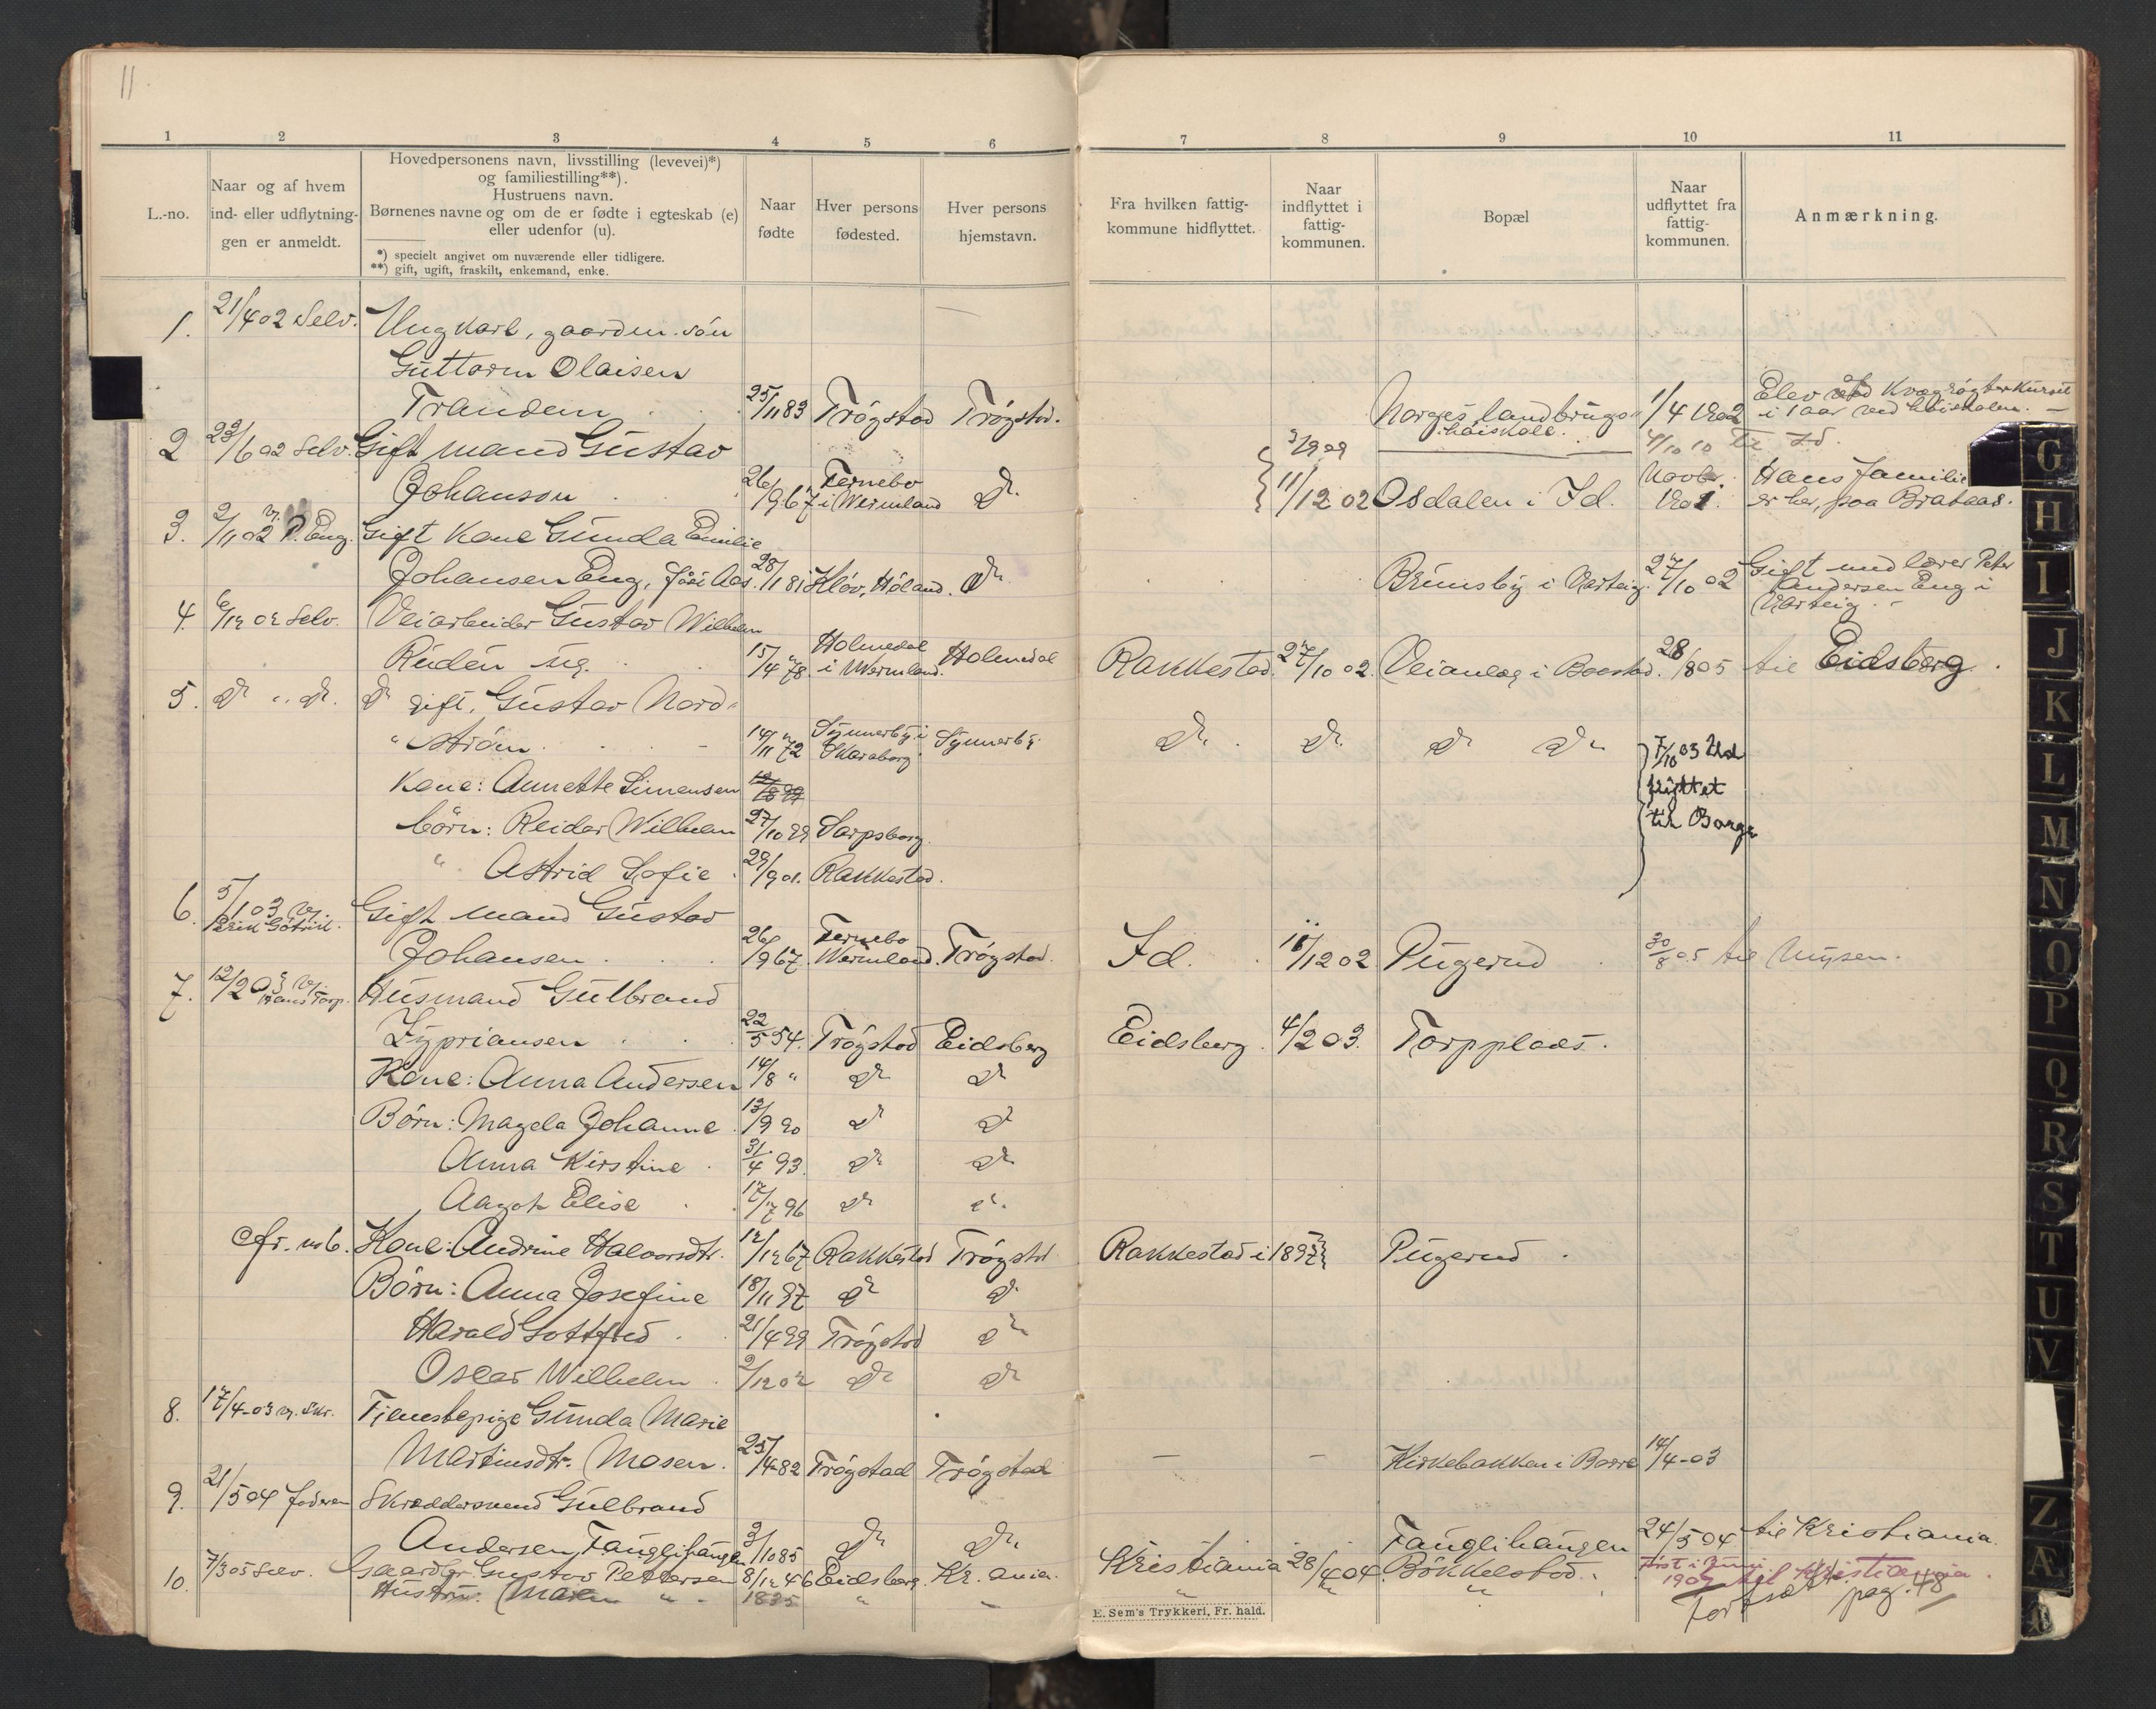 11
1 2 3 4 5 6 7 8 9 10 11
L.-no.
Naar og af hvem
ind- eller udflytnin-
gen er anmeldt.
Hovedpersonens navn, livsstilling (levevei)*)
og familiestilling**).
Hustruens navn.
Børnenes navne og om de er fødte i egteskab (e)
eller udenfor (u).
*) specielt angivet om nuværende eller tidligere.
**) gift, ugift, fraskilt, enkemand, enke.
Naar
fødte
Hver persons
fødested.
Hver persons
hjemstavn.
Fra hvilken fattig-
kommune hidflyttet.
Naar
indflyttet i
fattig-
kommunen.
Bopæl
Naar
udflyttet fra
fattig-
kommunen.
Anmærkning.
1. 21/4 02 Selv. Ungkarl, gaardm. søn
Guttorm Olaisen
Trandem 25/11 83 Trøgstad Trøgstad. Norges landbrugs- 1/4 1902 Elev ved Kvægrøgterkurset
høiskole. i 1 aar ved høiskolen.
2 23/6 02 Selv. Gift mand Gustav 4/10 10 til Id.
Johanson 26/9 67 Fernebo i Wermland do. 11/12 02 Osdalen i Id. Novbr. 1901. Hans familie
er her, paa Brataas.
3. 2/11 02 v. P. Eng. Gift Kone Gunda Emilie
Johansen Eng, f. 28/1 81 Kløv, Høland. do. Brunsby i Varteig. 27/10 02 Gift med lærer Peter
Andersen Eng i
Varteig.
4. 6/12 02 Selv. Veiarbeider Gustav Wilhelm
Rudén ug. 15/4 78. Holmedal i Wermland. Holmedal Rakkestad. 27/10 02. Veianlæg i Baastad. 28/8 05 til Eidsberg.
5. do " do. do gift, Gustav Nord-
"strøm 14/11 72 Synnerby i Skaraborg. Synnerby. do. do. do do 7/10 03 Ud
flyttet
til Borge
Kone: Annette Simensen
børn: Reidar Wilhelm 27/10 99 Sarpsborg.
" Astrid Sofie 29/9 01. Rakkestad.
6. 5/1 03 v. Gift mand Gustav
Johansen 26/9 67. Fernebo Wermland. Trøgstad. Id. 12 02 Pugerud 30/8 05 til Mysen.
7. 12/2 03 v. Hans Torp. Husmand Gulbrand
Zypriansen 22/5 54. Trøgstad Eidsberg Eidsberg. 4/2 03. Torpplads.
Kone: Anna Andersen 14/8 " do do
Børn: Magda Johanne 13/9 90 do do
Anna Kirstine 4 93. do do
Aagot Elise 17/7 96 do do.
Cfr. no 6. Kone: Andrine Halvorsdtr. 12/12 67 Rakkestad Trøgstd Rakkestad i 1897 Pugerud
Børn: Anna Josefine 18/11 97 do do
Harald Gottfred 21/4 99 Trøgstad do
Oscar Wilhelm 2/12 02 do do
8. 17/4-03 v. Skr. Tjenestepige Gunda Marie
Martinsdtr. Mosen. 25/4-82 Trøgstad Trøgstad — — Kirkebakken i Borre 14/4-03
9. 21/5 04 faderen Skræddersvend Gulbrand
Andersen, Fauglihaugen 3/10 85 do do Fauglihaugen 24/5 04 til Kristiania.
10. 7/3 05 Selv. Gaardbr Gustav Pettersen 8/12 46 Eidsberg. Kr.ania. Kristiania 28/4 04 Bøkkelstad. først i Juni 1907 til Kristiania.
Hustru: Maren " 1835 " " " " " Fortsat pag. 48
E. Sem's Trykkeri, Fr. hald.
G
H
I
J
K
L
M
N
O
P
Q
R
S
T
U
V
Z
Æ